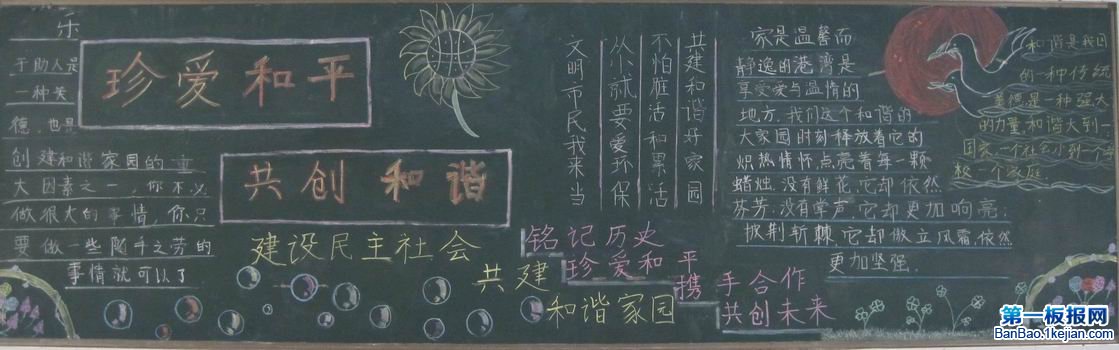 乐
于助人是
一种美
德，也是
创建和谐家园的重
大因素之一，你不必
做很大的事情，你只
要做一些随手之劳的
事情就可以了
珍爱和平
共创和谐
建设民主社会
共建
和谐家园
共建和谐好家园
不怕脏活和累活
从小就要爱环保
文明市民我来当
铭记历史
珍爱和平
携手合作
共创未来
家是温馨而
静逸的港湾是
享受爱与温情的
地方，我们这个和谐的
大家园时刻释放着它的
炽热情怀点亮着每一颗
蜡烛，没有鲜花，它却依然
芬芳；没有掌声，它却更加响亮；
披荆斩棘，它却傲立风霜，依然
更加坚强.
和谐是我国
的一种传统
美德，是一种强大
的力量，和谐大到一个
国家，一个社会小到一个
一个家庭
第一板报网
BanBao.1kejian.com